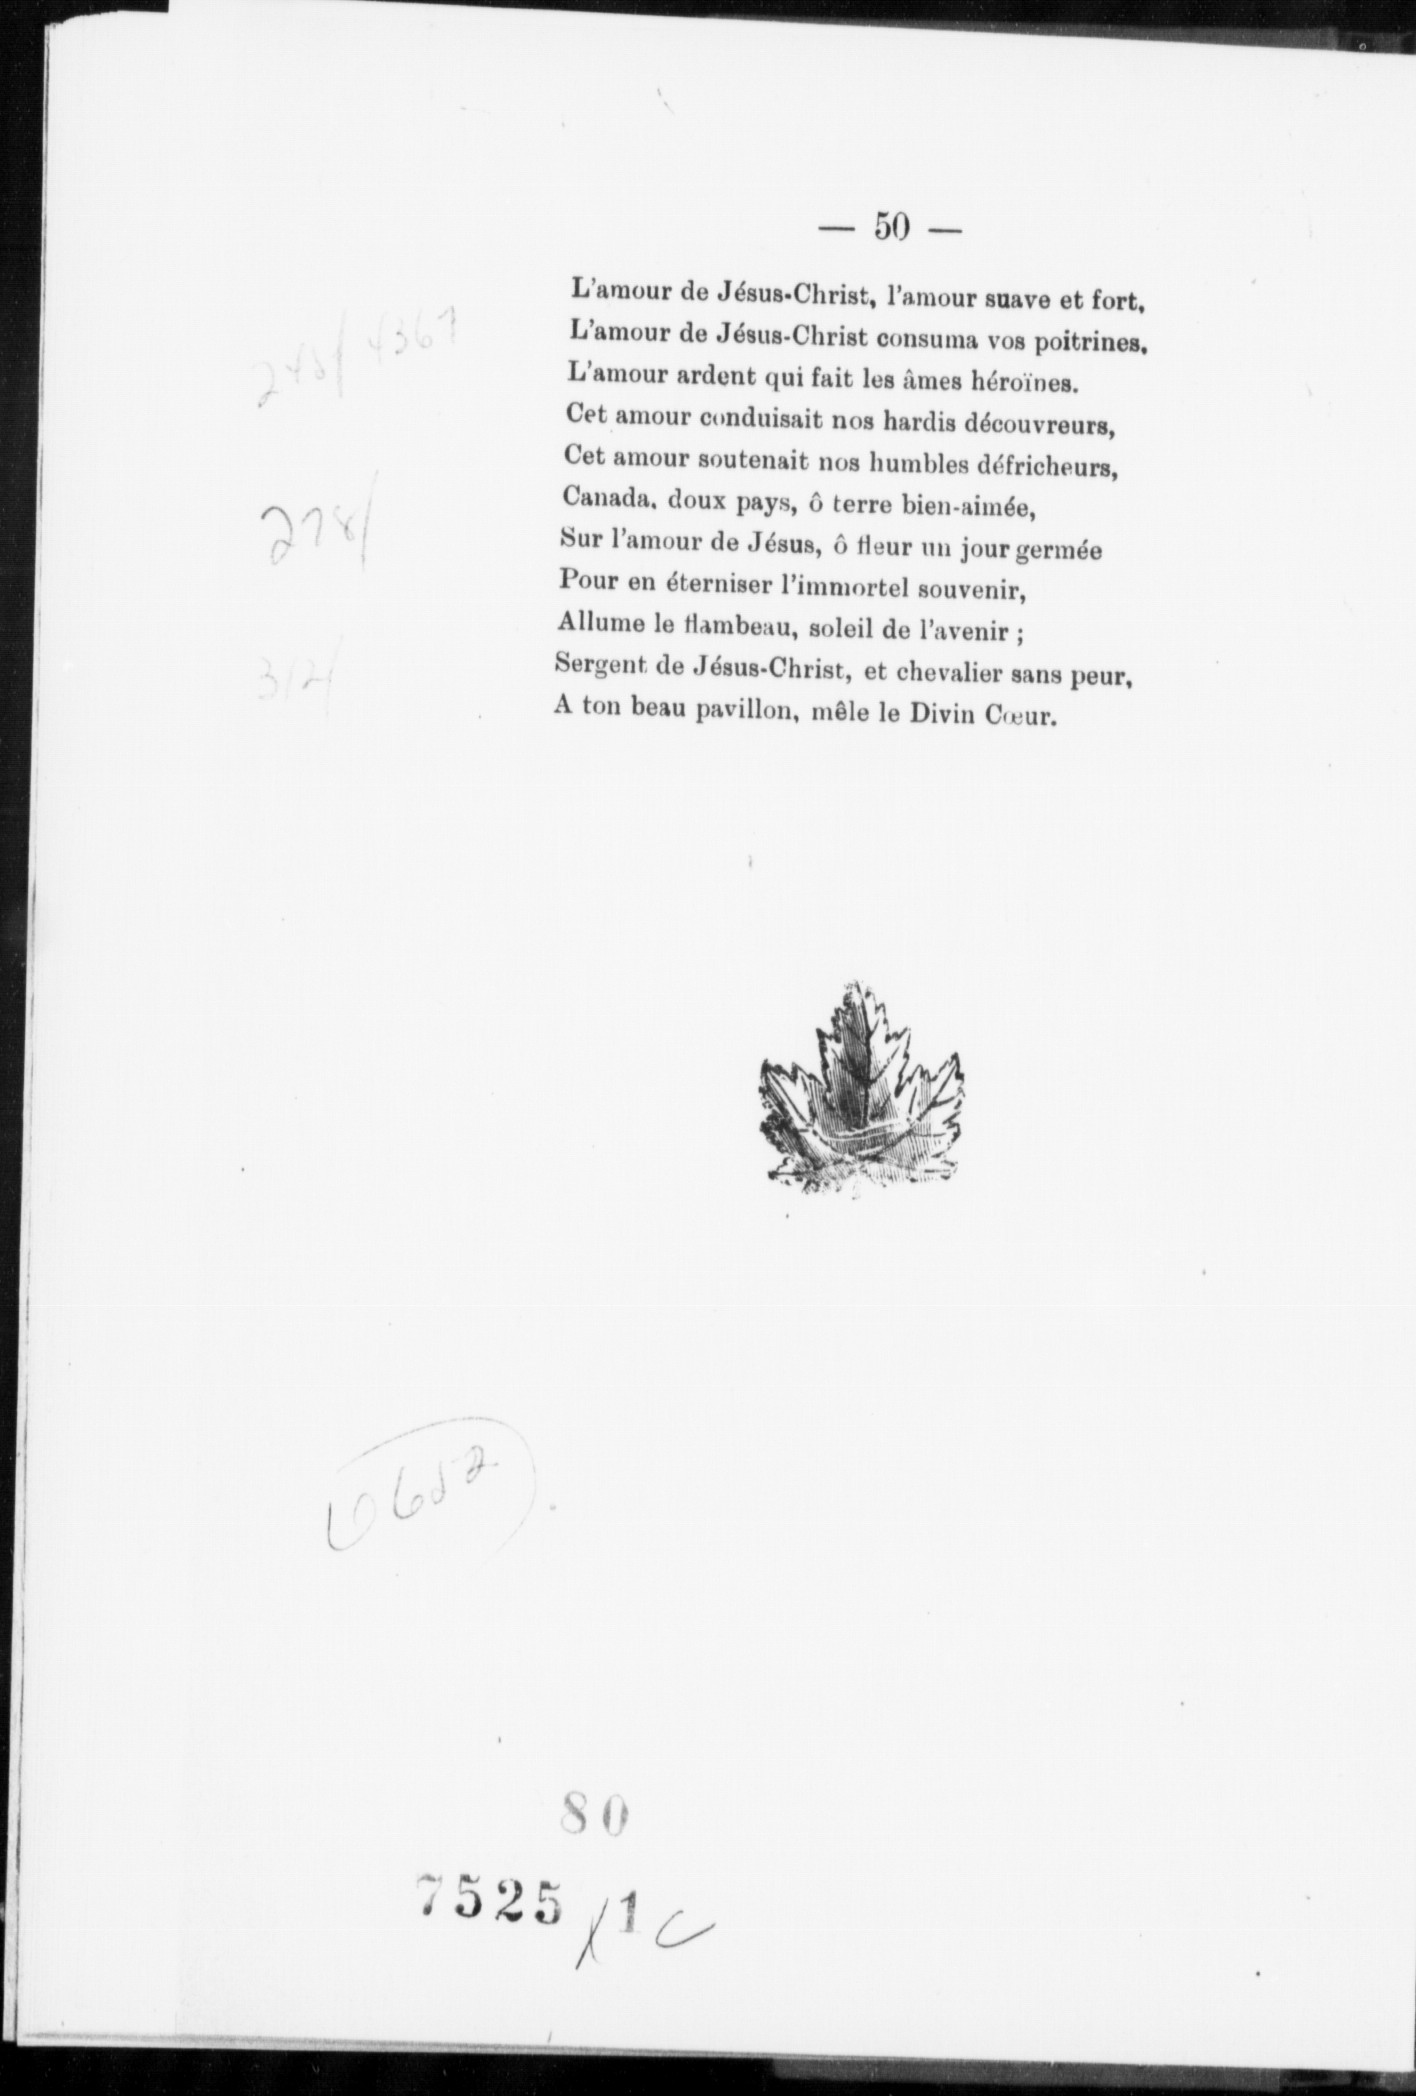 — 50 —
L'amour de Jésus-Christ, l'amour suave et fort,
L'amour de Jésus-Christ consuma vos poitrines,
L'amour ardent qui fait les âmes héroïnes.
Cet amour conduisait nos hardis découvreurs,
Cet amour soutenait nos humbles défricheurs,
Canada, doux pays, ô terre bien-aimée,
Sur l'amour de Jésus, ô fleur un jour germée
Pour en éterniser l'immortel souvenir,
Allume le flambeau, soleil de l'avenir ;
Sergent de Jésus-Christ, et chevalier sans peur,
A ton beau pavillon, mêle le Divin Cœur.
4367
278/
312/
6652
80
7525/1 c